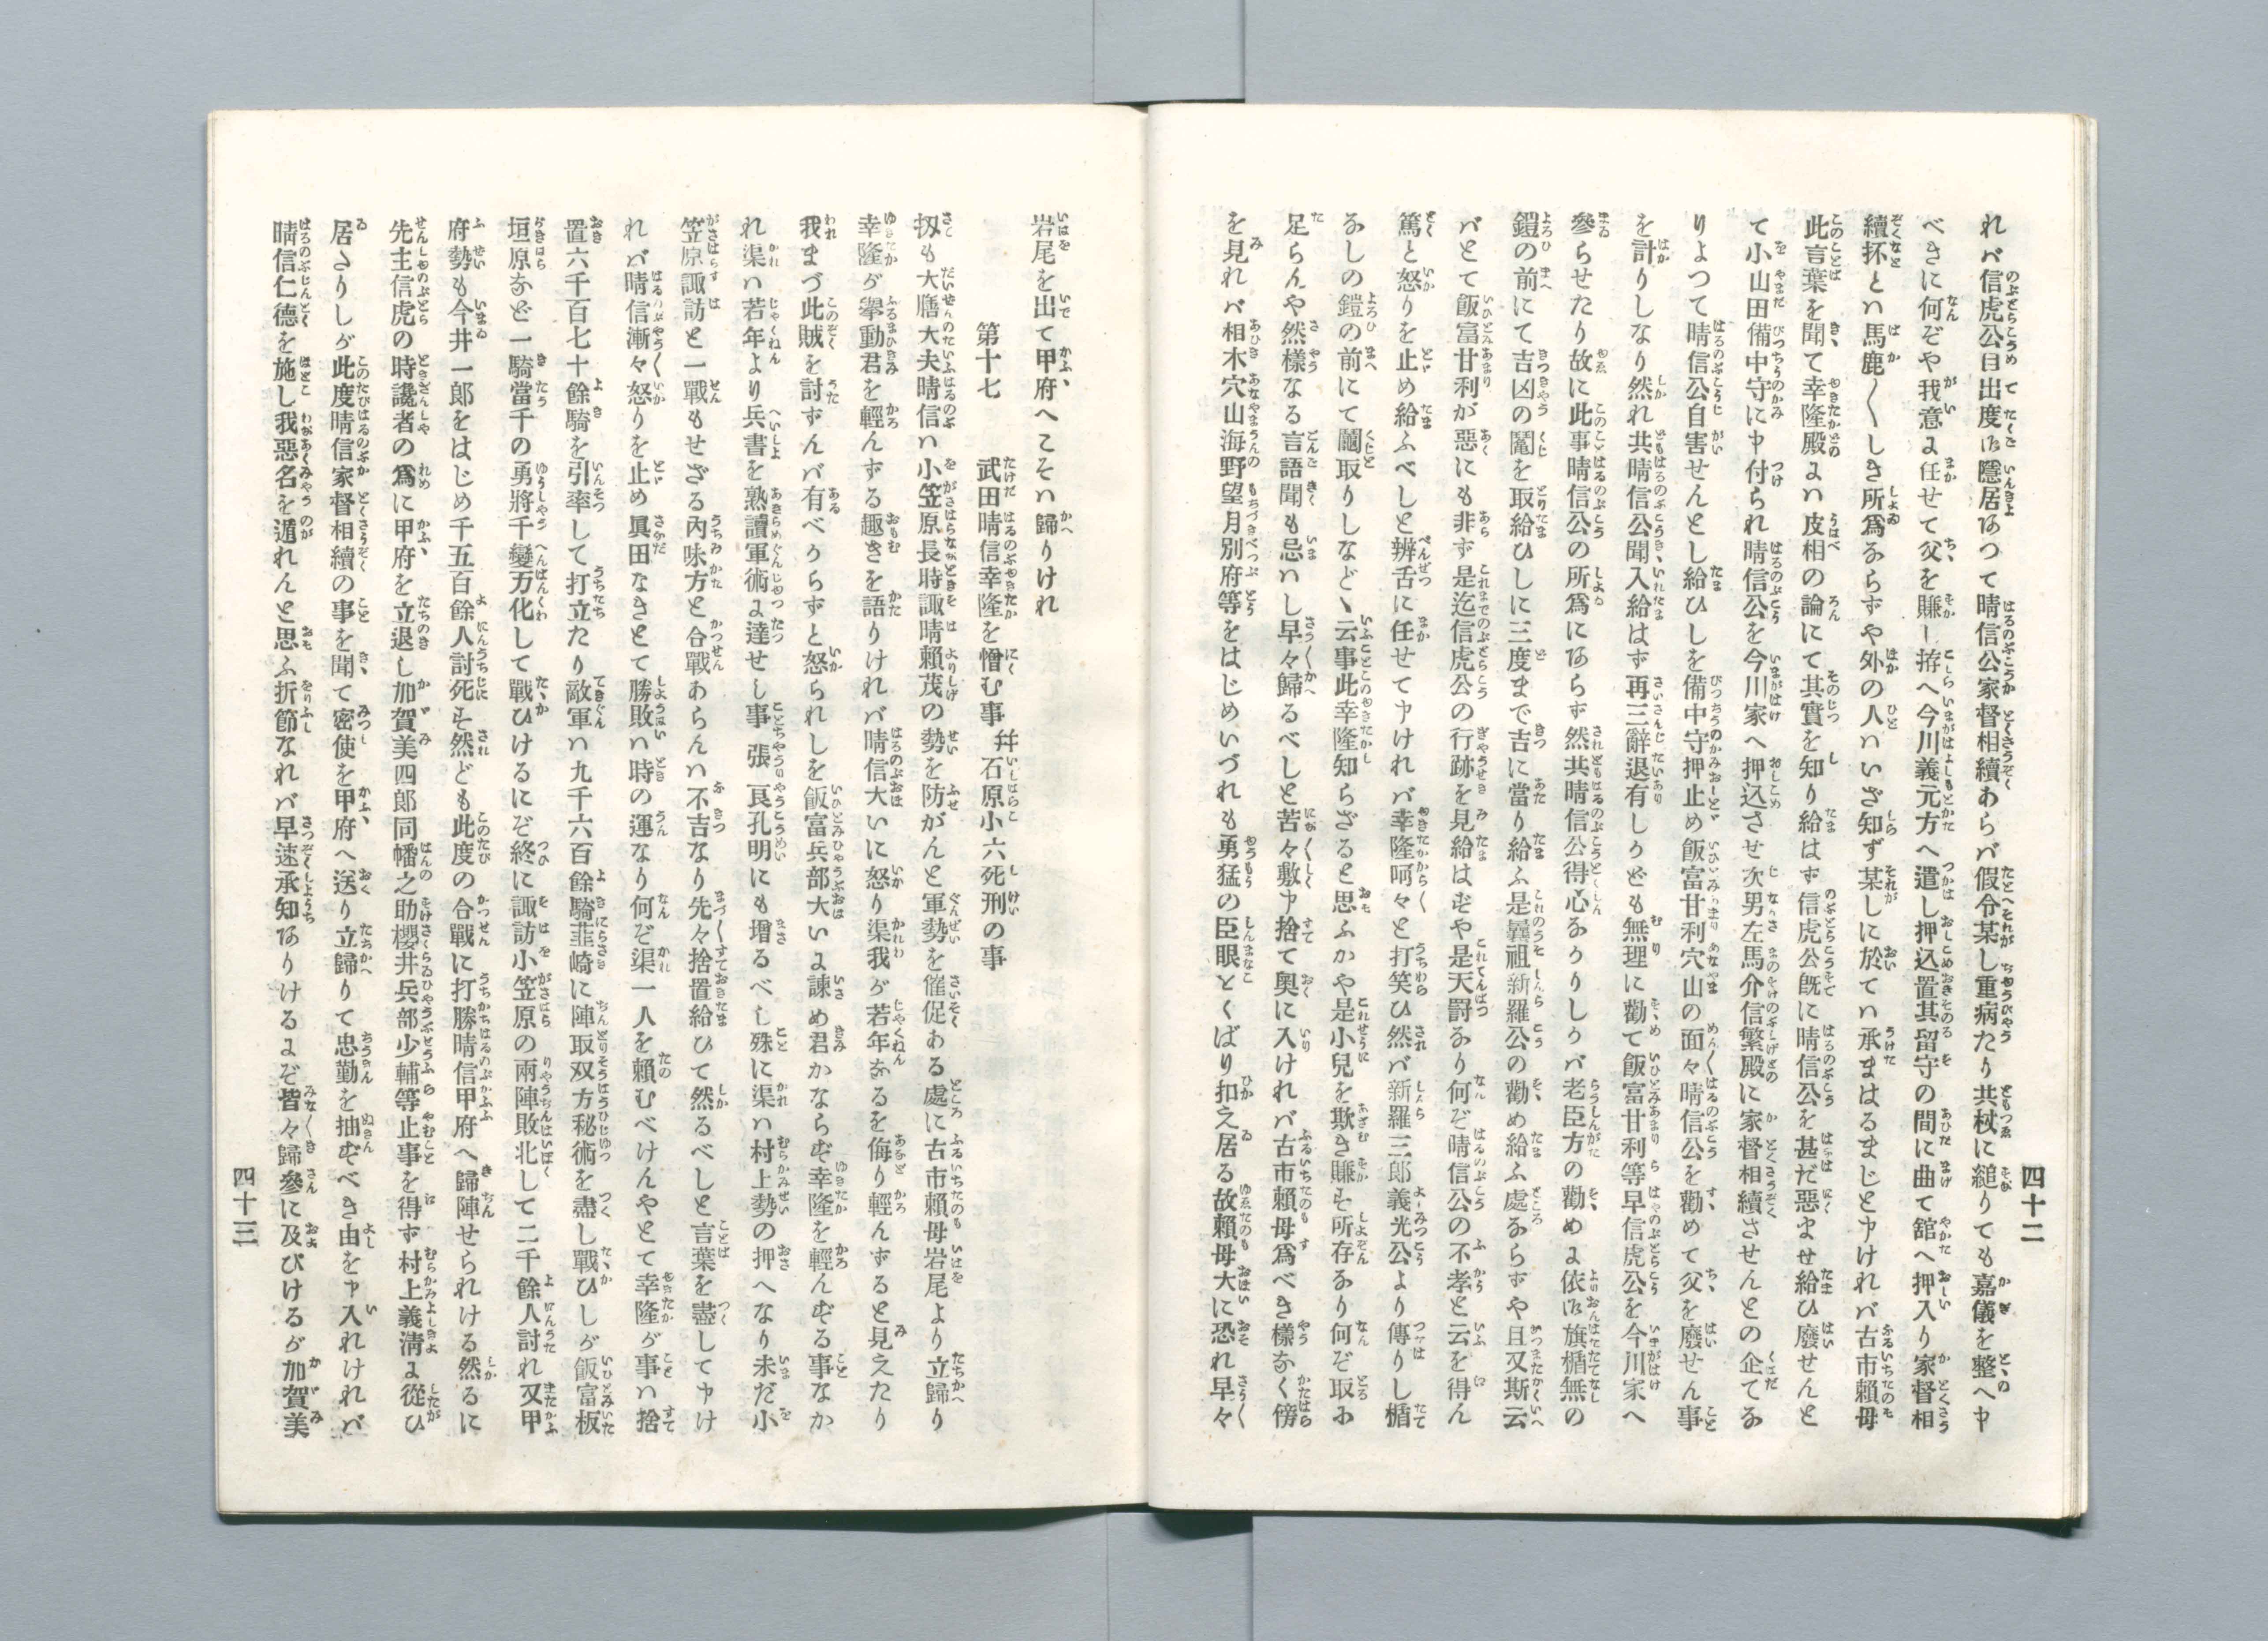 四十二
れバ信虎公目出度に隱居あつて晴信公家督相續あらバ假令某し重病たり共杖に縋りても嘉儀を整へ申
べきに何ぞや我意よ任せて父を賺し拵へ今川義元方へ遣し押込置其留守の間に曲て舘へ押入り家督相
續抔とハ馬鹿〱しき所爲ならずや外の人ハいざ知ず某しに於てハ承まはるまじと申けれバ古市頼母
此言葉を聞て幸隆殿よハ皮相の論にて其實を知り給はず信虎公既に晴信公を甚だ惡ませ給ひ廢せんと
て小山田備中守に申付られ晴信公を今川家へ押込させ次男左馬介信繁殿に家督相續させんとの企てな
りよつて晴信公自害せんとし給ひしを備中守押止め飯富甘利穴山の面々晴信公を勸めて父を廢せん事
を計りしなり然れ共晴信公聞入給はず再三辭退有しかども無理に勸て飯富甘利等早信虎公を今川家へ
參らせたり故に此事晴信公の所爲にあらず然共晴信公得心なかりしかバ老臣方の勸めよ依に旗楯無の
鎧の前にて吉凶の鬮を取給ひしに三度まで吉に當り給ふ是曩祖新羅公の勸め給ふ處ならずや且又斯云
バとて飯富甘利が惡にも非ず是迄信虎公の行跡を見給はずや是天罸なり何ぞ晴信公の不孝と云を得ん
篤と怒りを止め給ふべしと辨舌に任せて申けれバ幸隆呵々と打笑ひ然バ新羅三郎義光公より傳りし楯
なしの鎧の前にて鬮取りしなどゝ云事此幸隆知らざると思ふかや是小兒を欺き賺す所存なり何ぞ取に
足らんや然樣なる言語聞も忌ハし早々歸るべしと苦々敷申捨て奥に入けれバ古市頼母爲べき樣なく傍
を見れバ相木穴山海野望月別府等をはじめいづれも勇猛の臣眼とくばり扣え居る故頼母大に恐れ早々
岩尾を出て甲府へこそハ歸りけれ
第十七　武田晴信幸隆を憎む事　幷石原小六死刑の事
扨も大膳大夫晴信ハ小笠原長時諏訪頼茂の勢を防がんと軍勢を催促ある處に古市頼母岩尾より立歸り
幸隆ガ擧動君を輕んずる趣きを語りけれバ晴信大いに怒り渠我ガ若年なるを侮り輕んずると見えたり
我まづ此賊を討ずんバ有べからずと怒られしを飯富兵部大いよ諫め君かならず幸隆を輕んずる事なか
れ渠ハ若年より兵書を熟讀軍術よ達せし事張良孔明にも增るべし殊に渠ハ村上勢の押へなり未だ小
笠原諏訪と一戰もせざる内味方と合戰あらんハ不吉なり先々捨置給ひて然るべしと言葉を盡して申け
れバ晴信漸々怒りを止め眞田なきとて勝敗ハ時の運なり何ぞ渠一人を頼むべけんやとて幸隆ガ事ハ捨
置六千百七十餘騎を引率して打立たり敵軍ハ九千六百餘騎韮崎に陣取双方秘術を盡し戰ひしガ飯富板
垣原など一騎當千の勇將千變万化して戰ひけるにぞ終に諏訪小笠原の兩陣敗北して二千餘人討れ又甲
府勢も今井一郎をはじめ千五百餘人討死す然ども此度の合戰に打勝晴信甲府へ歸陣せられける然るに
先主信虎の時讒者の爲に甲府を立退し加賀美四郎同幡之助櫻井兵部少輔等止事を得ず村上義淸よ從ひ
居たりしガ此度晴信家督相續の事を聞て密使を甲府へ送り立歸りて忠勤を抽ずべき由を申入れけれバ
晴信仁德を施し我惡名を遁れんと思ふ折節なれバ早速承知ありけるよぞ皆々歸參に及びけるガ加賀美
四十三